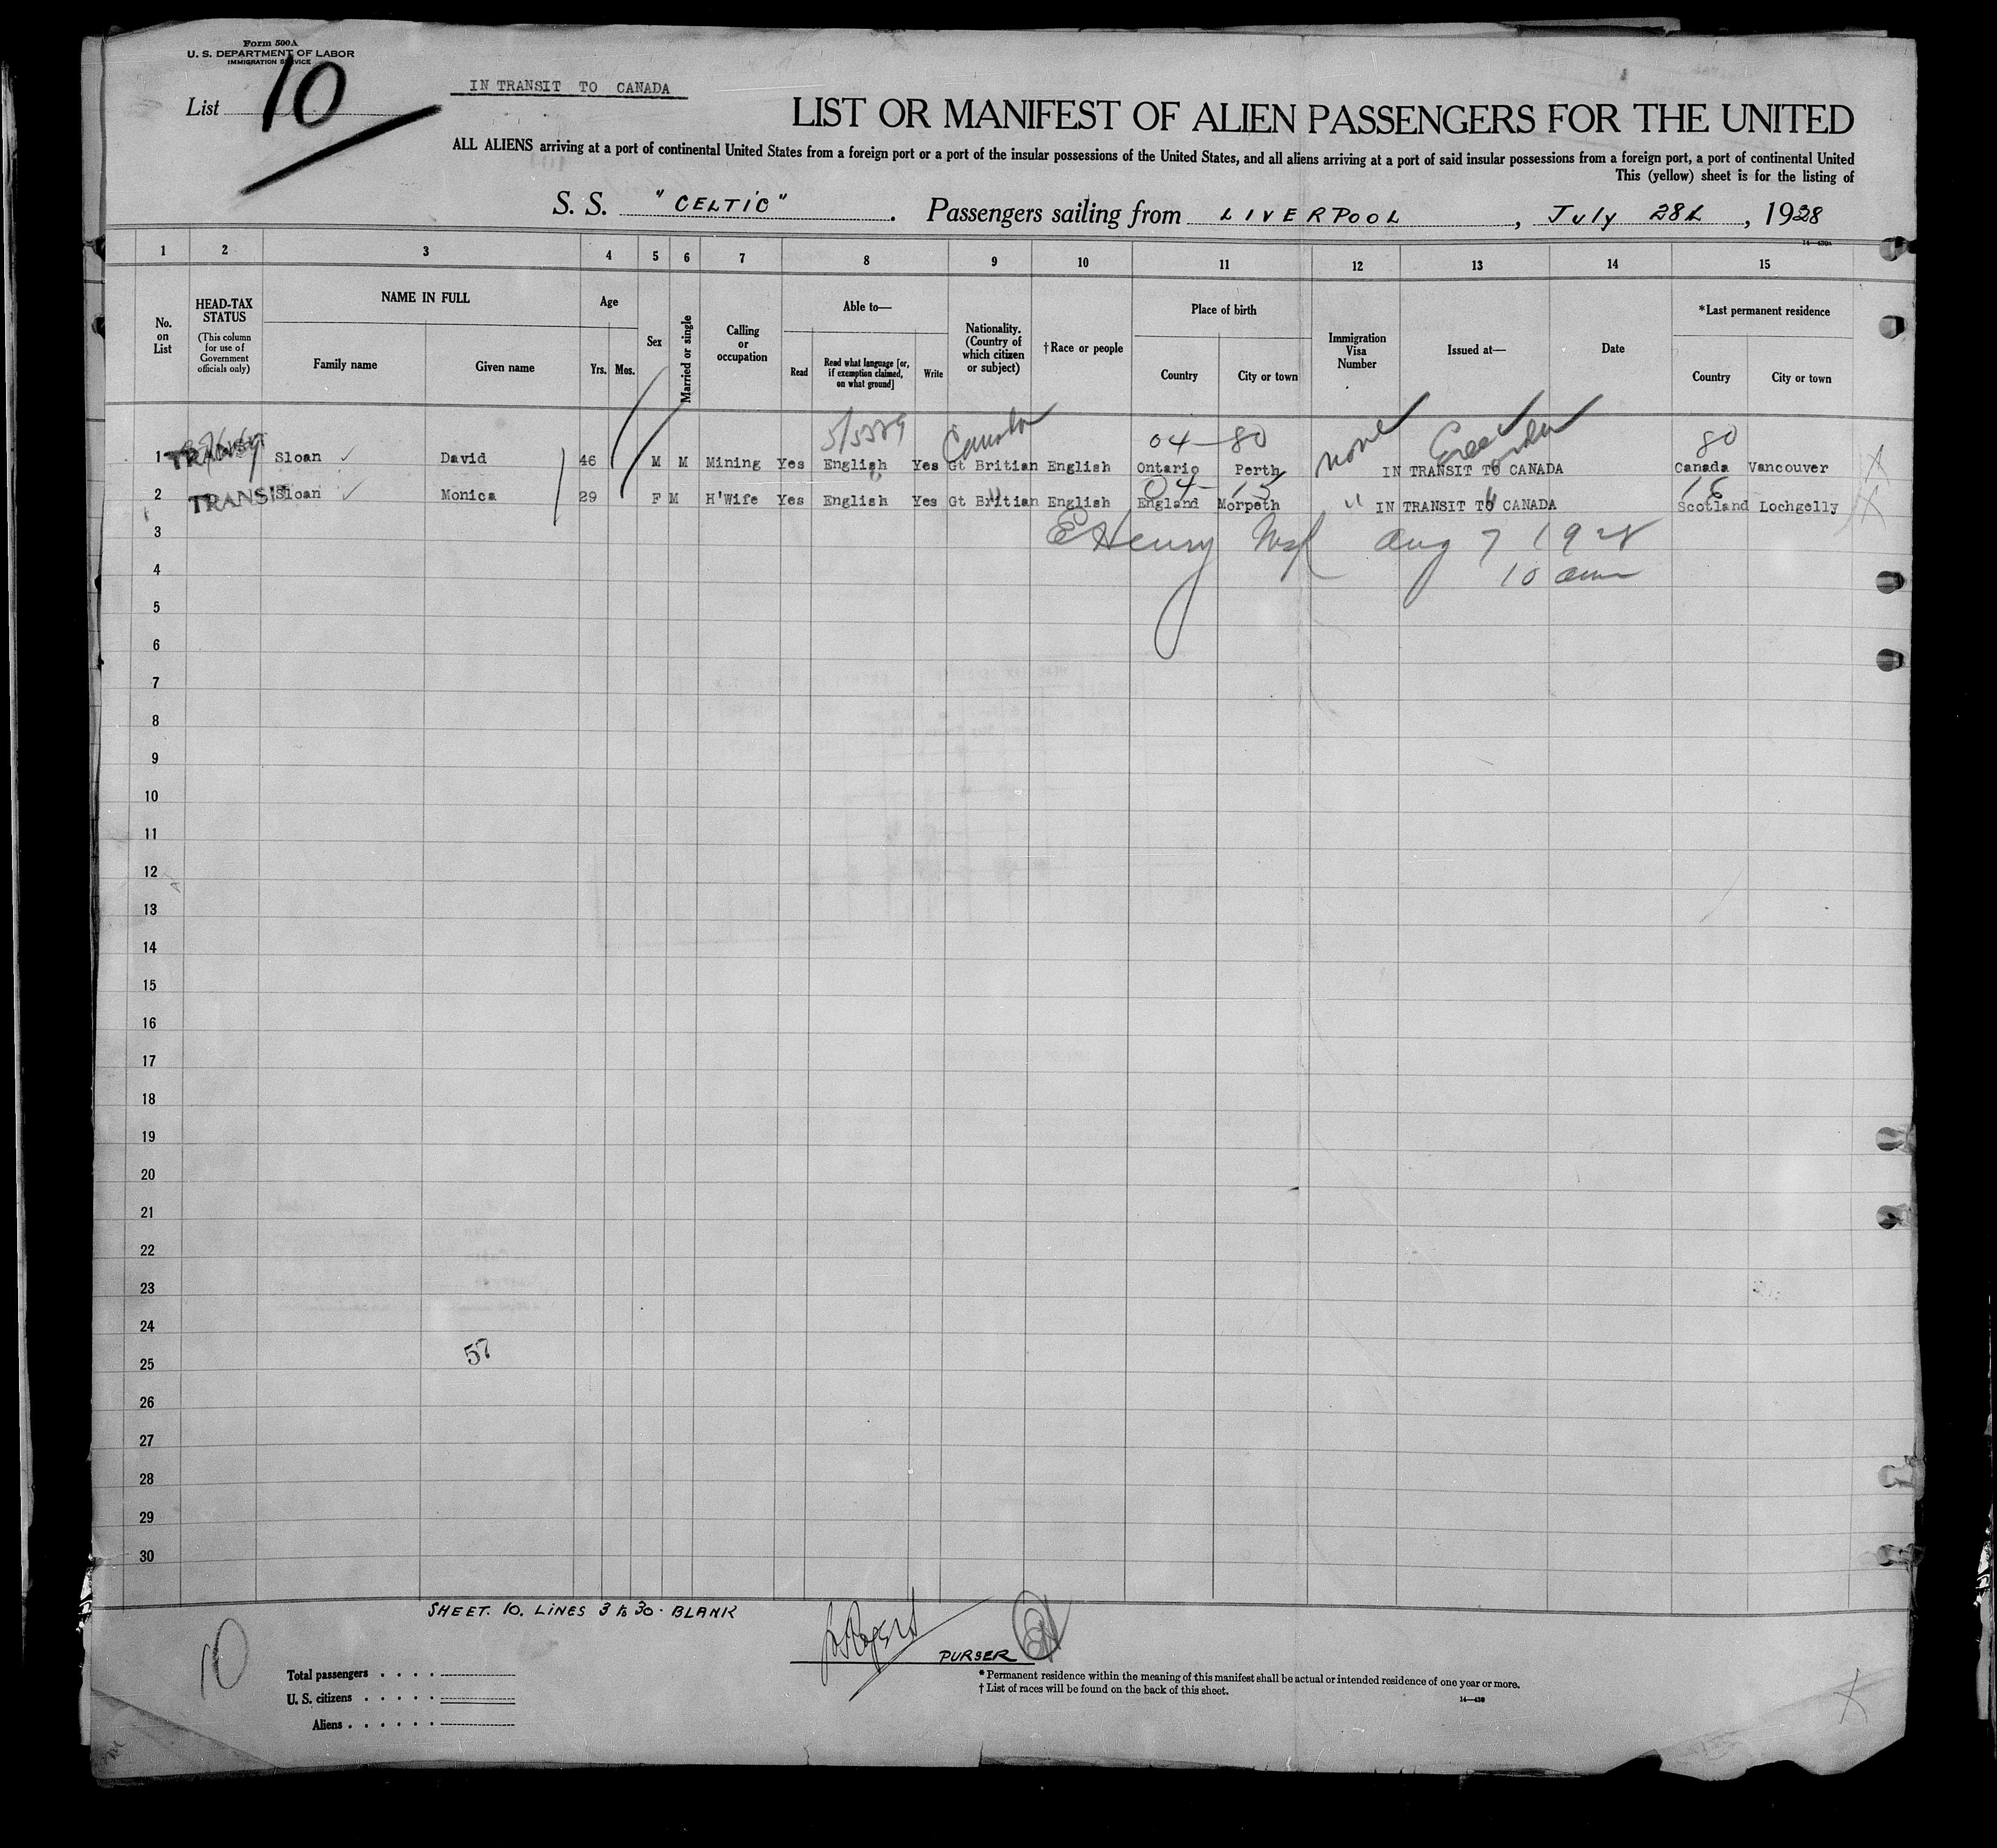 Form 500A
U. S. DEPARTMENT OF LABOR
IMMIGRATION SERVICE
List 10
IN TRANSIT TO CANADA
LIST OR MANIFEST OF ALIEN PASSENGERS FOR THE UNITED
ALL ALIENS arriving at a port of continental United States from a foreign port or a port of the insular possessions of the United States, and all aliens arriving at a port of said insular possessions from a foreign port, a port of continental United
This (yellow) sheet is for the listing of
S. S. "CELTIC". Passengers sailing from LIVERPOOL, July 28th, 1928
1 2 3 4 5 6 7 8 9 10 11 12 13 14 15
No. on List
HEAD-TAX STATUS
(This column for use of Government officials only)
NAME IN FULL
Family name Given name
Age
Yrs. Mos.
Sex
Married or single
Calling or occupation
Able to—
Read
Read what language [or, if exemption claimed, on what ground]
Write
Nationality. (Country of which citizen or subject)
†Race or people
Place of birth
Country City or town
Immigration Visa Number
Issued at—
Date
*Last permanent residence
Country City or town
Canada 04-80 none 80
1 TRANSIT Sloan David 46 M M Mining Yes English Yes Gt Britian English Ontario Perth IN TRANSIT TO CANADA Canada Vancouver
04-
2 TRANSIT Sloan Monica 29 F M H'Wife Yes English Yes Gt Britian English England Morpeth " IN TRANSIT TO CANADA Scotland Lochgelly
3 Henry Aug 7 1928
4 10 am
5
6
7
8
9
10
11
12
13
14
15
16
17
18
19
20
21
22
23
24
57
25
26
27
28
29
30
SHEET. 10. LINES 3 to 30. BLANK
10
PURSER
Total passengers
U. S. citizens
Aliens
*Permanent residence within the meaning of this manifest shall be actual or intended residence of one year or more.
†List of races will be found on the back of this sheet.
14—430